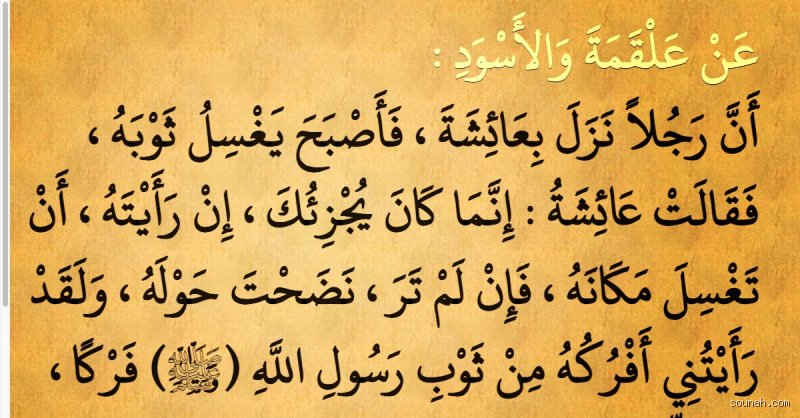 عَنْ عَلْقَمَةَ وَالأَسْوَدِ :
أَنَّ رَجُلاً نَزَلَ بِعَائِشَةَ ، فَأَصْبَحَ يَغْسِلُ ثَوْبَهُ ،
فَقَالَتْ عَائِشَةُ : إِنَّمَا كَانَ يُجْزِئُكَ ، إِنْ رَأَيْتَهُ ، أَنْ
تَغْسِلَ مَكَانَهُ ، فَإِنْ لَمْ تَرَ ، نَضَحْتَ حَوْلَهُ ، وَلَقَدْ
رَأَيْتُنِي أَفْرُكُهُ مِنْ ثَوْبِ رَسُولِ اللَّهِ (ﷺ) فَرْكًا ،
sounah.com